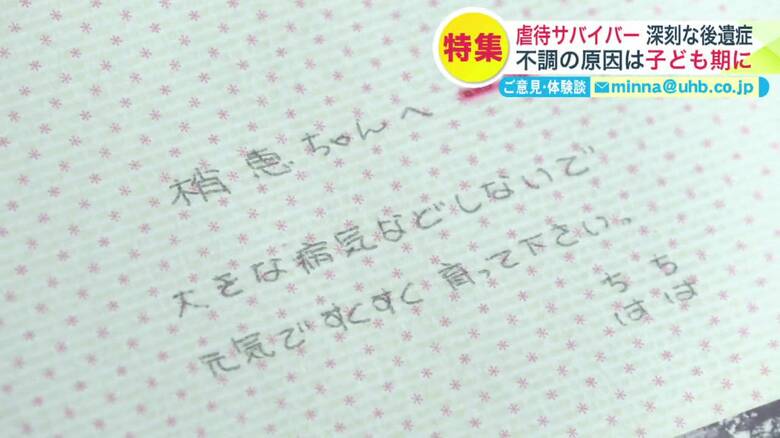 特集
虐待サバイバー 深刻な後遺症
不調の原因は子ども期に
ご意見・体験談 minna@uhb.co.jp
梢恵ちゃんへ
大きな病気などしないで
元気ですくすく育って下さい。
ちち
はは